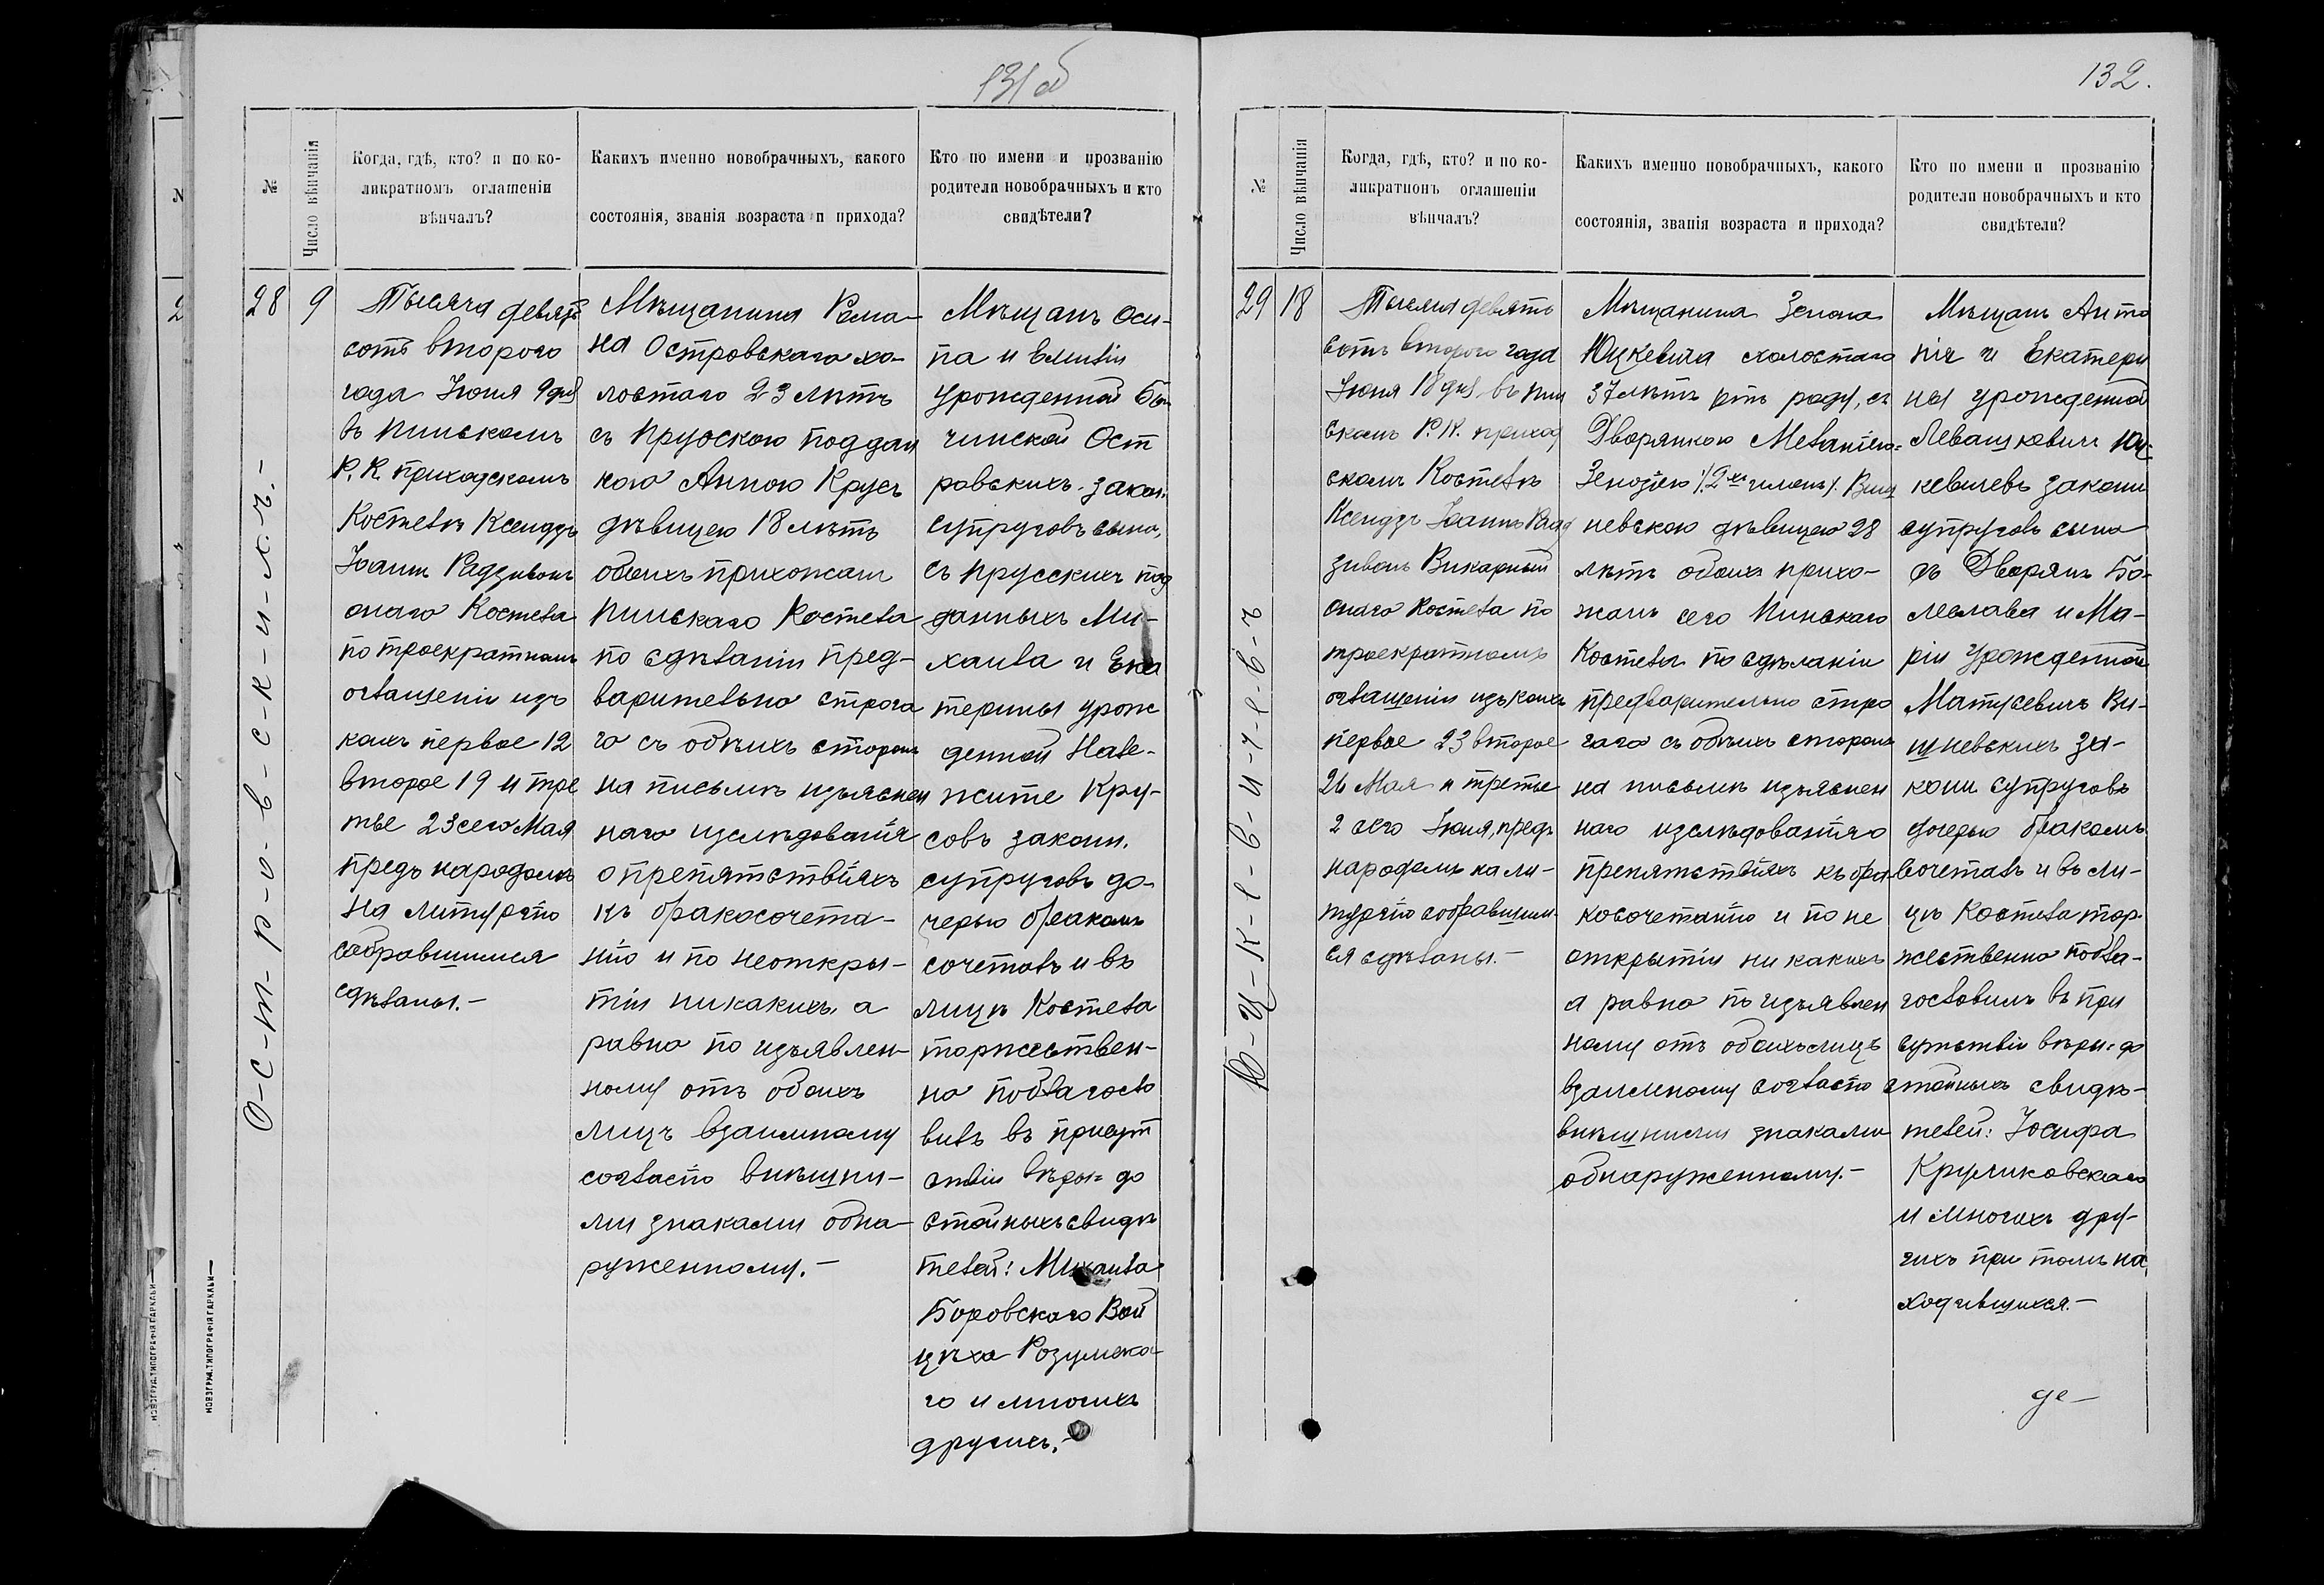 131 об
№
Число вѣнчанія
Когда, гдѣ, кто? и по ко-
ликратномъ оглашеніи
вѣнчалъ?
Какихъ именно новобрачныхъ, какого
состоянія, званія возраста и прихода?
Кто по имени и прозванію
родители новобрачныхъ и кто
свидѣтели?
О-с-т-р-о-в-с-к-и-х.ъ.-
28
9
Тысяча девять
сотъ второго
года Іюня 9 дня
въ Пинскомъ
Р. К. приходскомъ
Костелѣ Ксендзъ
Іоаннъ Радзивонъ
онаго Костела
по троекратномъ
оглашеніи изъ
коихъ первое 12
второе 19 и тре
тье 23 сего Мая
предъ народомъ
на литургію
собравшимися
сдѣланы.-
Мѣщанина Рома-
на Островскаго хо-
лостаго 23 лѣтъ
съ Прусскою поддан
ною Анною Крусъ
дѣвицею 18 лѣтъ
обоихъ прихожан
Пинскаго Костела
по сдѣланіи пред-
варительно строга
го съ обѣихъ сторонъ
на письмѣ изъяснен
наго изслѣдованія
о препятствіяхъ
къ бракосочета-
нію и по неоткры-
тіи никакихъ, а
равно по изъявлен-
ному отъ обоихъ
лицъ взаимному
согласію внѣшни-
ми знаками обна-
руженному.-
Мѣщанъ Оси-
па и Емиліи
урожденной
чинской Ост
ровскихъ закон.
супруговъ сына,
съ прусскихъ под
данныхъ Ми-
хаила и Ека
терины урож
денной Нале-
жите Кру-
совъ закон.
супруговъ до-
черью бракомъ
сочеталъ и въ
лицѣ Костела
торжествен-
но поблагосло
вилъ въ присут
ствіи вѣры= до
стойныхъ свидѣ
телей: Михаила
Боровскаго Вой
цѣха Розумска-
го и многихъ
другихъ.-
НОВОГРУД. ТИПОГРАФІЯ ГАРКАВИ
НОВОГРУД. ТИПОГРАФІЯ ГАРКАВИ
132.
№
Число вѣнчанія
Когда, гдѣ, кто? и по ко-
ликратномъ оглашеніи
вѣнчалъ?
Какихъ именно новобрачныхъ, какого
состоянія, званія возраста и прихода?
Кто по имени и прозванію
родители новобрачныхъ и кто
свидѣтели?
Ю-ц-к-е-в-и-ч-е-в-ъ
29
18
Тысяча девять
сотъ второго года
Іюня 18 дня въ Пин
скомъ Р. К. приход
скомъ Костелѣ
Ксендзъ Іоаннъ Рад
зивонъ Викарный
онаго Костела по
троекратномъ
оглашеніи изъ коихъ
первое 23 второе
26 Мая и третье
2 сего Іюня, предъ
народомъ на ли-
тургію собравшим-
ся сдѣланы.-
Мѣщанина Зенона
Юцкевича холостаго
37 лѣтъ отъ роду, съ
Дворянкою Меланіею=
Зенозіею /2хъ именъ/. Виш
невскою дѣвицею 28
лѣтъ обоихъ прихо-
жанъ сего Пинскаго
Костела по сдѣланіи
предварительно стро
гаго съ обѣихъ сторонъ
на письмѣ изъяснен
наго изслѣдованія о
препятствіяхъ къ бра
косочетанію и по не
открытіи ни какихъ
а равно по изъявлен
ному отъ обоихъ лицъ
взаимному согласію
внѣшними знаками
обнаруженному.-
Мѣщанъ Анто
нія и Екатери
ны урожденной
Левашкевичъ Юц-
кевичевъ законн
супруговъ сына
съ Дворянъ Бо-
леслава и Ма-
ріи урожденной
Матусевичъ Ви-
шневскихъ за-
конн супруговъ
дочерью бракомъ
сочеталъ и въ ли-
цѣ Костела тор-
жественно побла-
гословилъ въ при
сутствіи вѣры= до
стойныхъ свидѣ-
телей: Іосифа
Круликовскаго
и многихъ дру-
гихъ при томъ на
ходившихся.-